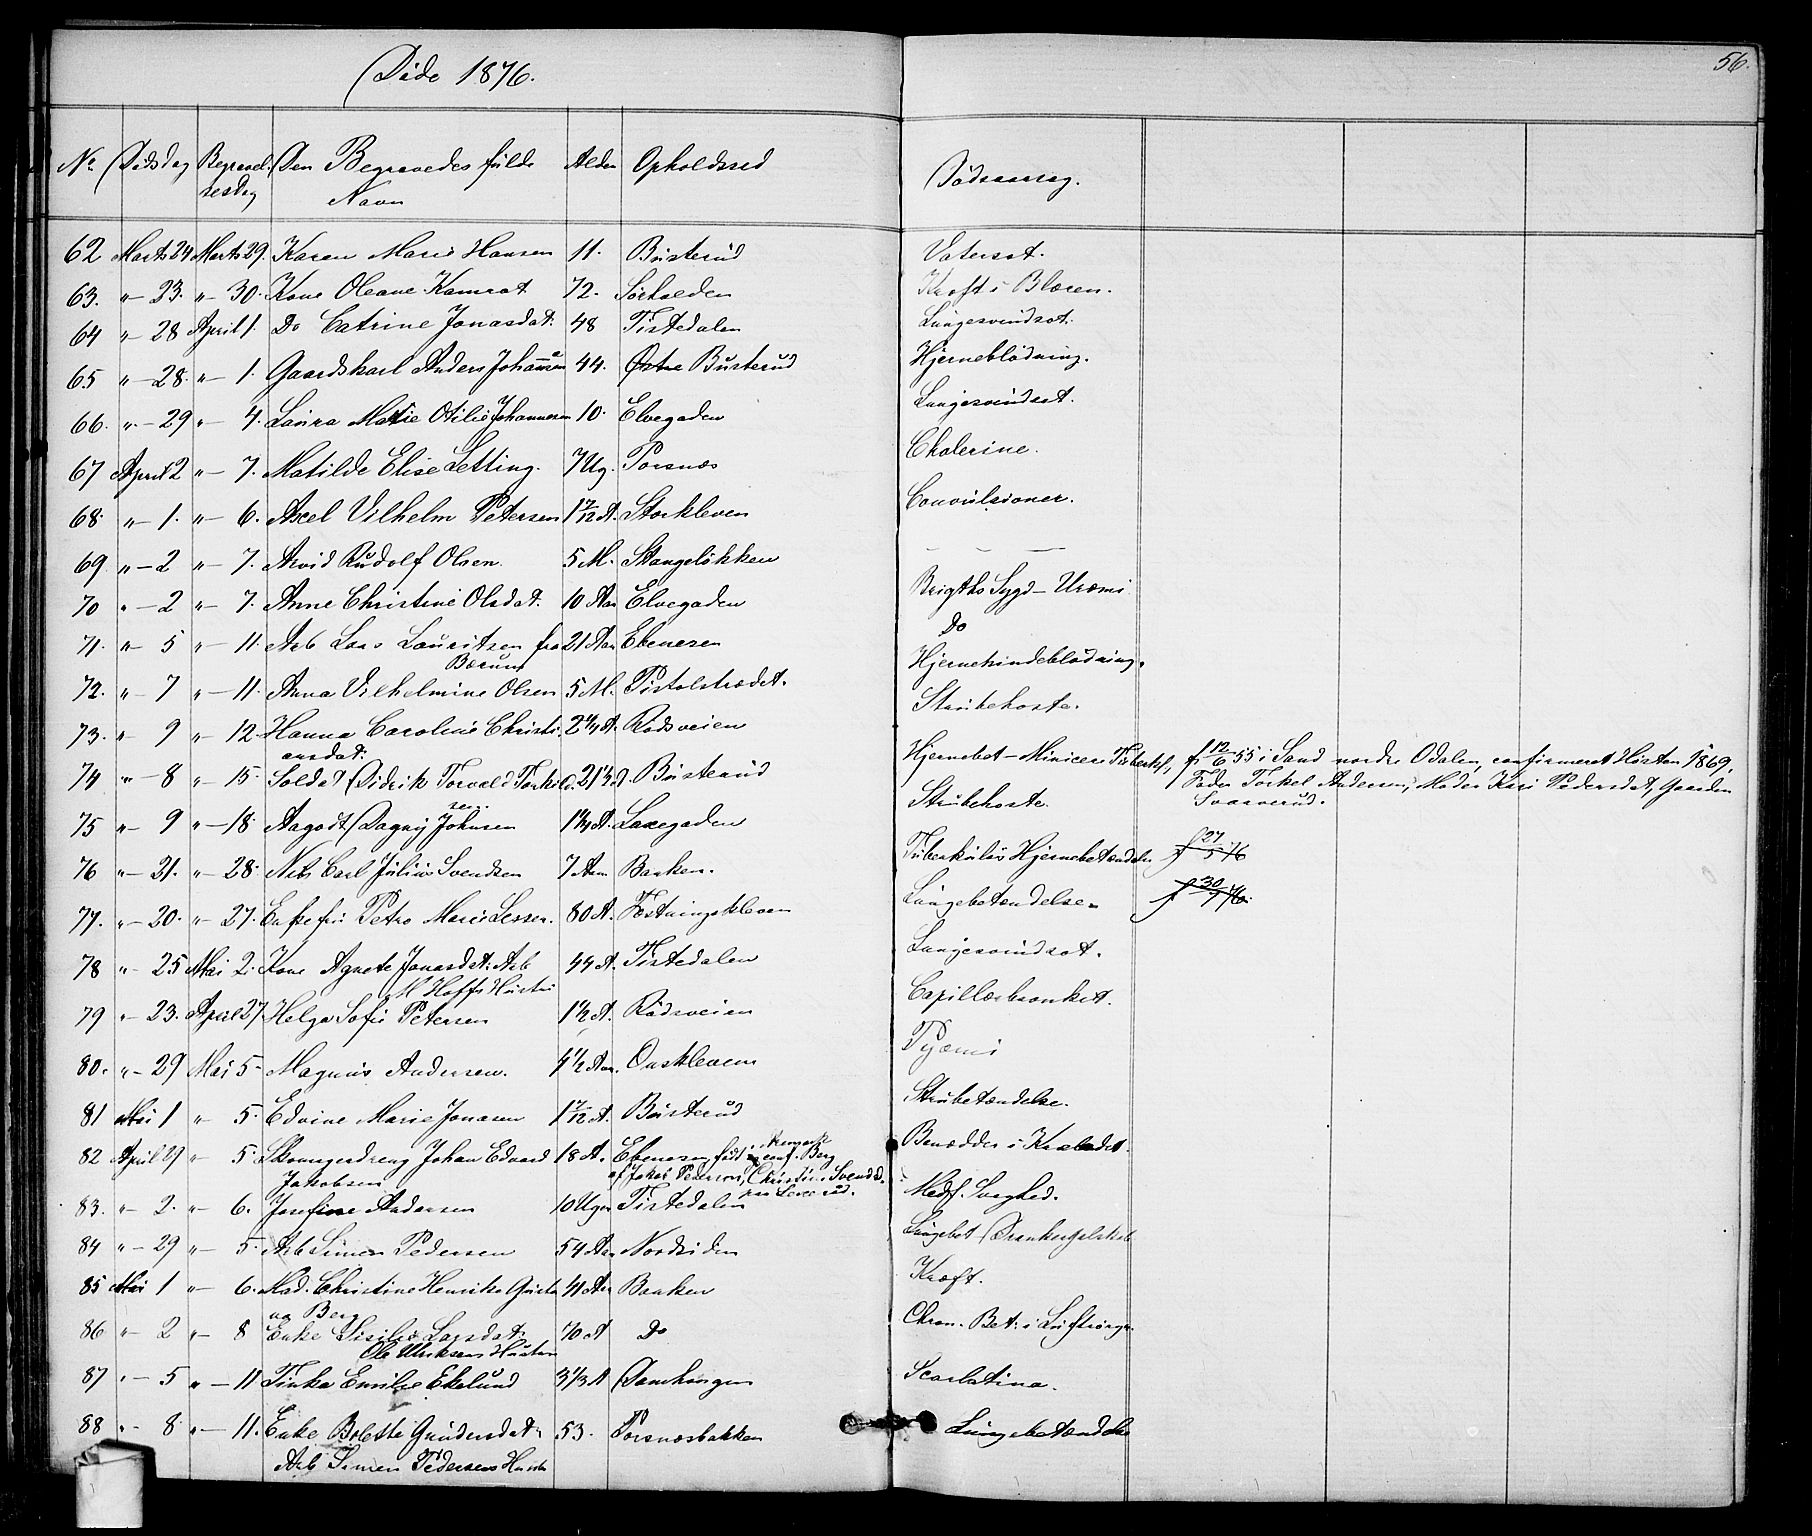 Døde 1876.
56.
No Dødsdag Begravelsesdag Den Begravedes fulde Navn Alder Opholdssted Dødsaarsag.
62 Marts 24 Marts 29. Karen Marie Hansen 11. Busterud Vatersot.
63. " – 23. " – 30. Kone Oleane Kamrat 72. Sørhalden Kræft i Blæren.
64 " – 28 April 1. Do Catrine Jonasdat. 48 Tistedalen Lungesvindsot.
65 " – 28. " – 1. Gaardskarl Anders Johansen 44. Østre Busterud Hjerneblødning.
66. " – 29 " – 4. Laura Marie Otilie Johannesen 10. Elvegaden Lungesvindsot.
67 April 2 " – 7. Matilde Elise Letting. 7 Ug. Porsnæs Cholerine.
68. " – 1. " – 6. Axel Vilhelm Petersen 1 7/12 A. Storkleven Convulsioner.
69 " – 2 " – 7. Arvid Rudolf Olsen. 5 M. Stangeløkken — — —
70 " – 2 " – 7. Anne Christine Olsdat. 10 Aar Elvegaden Brigths Sygd – Uræmi
71. " – 5 " – 11. Arb Lars Lauritsen fra 21 Aar Ebenesen Do
Bærum
72. " – 7 " – 11. Anna Vilhelmine Olsen 5 M. Pistolstrædet. Hjernehindeblødning.
73. " – 9 " – 12. Hanna Caroline Christi 2 1/4 A. Rødsveien Strubehoste.
ansdat.
74 " – 8 " – 15. Soldat Didrik Torvald Torkil 21 1/2 Busterud Hjernebet – f 12/6 55 i Sand nordre Odalen, confirmeret Høsten 1869,
sen. Fader Torkel Andersen, Moder Kari Pedersdat, Gaarden
Svarverud.
75 " – 9 " – 18. Aagodt Dagny Johnsen 1 1/4 A. Laxegaden Strubehoste.
76 " – 21. " – 28. Nils Carl Julius Svendsen 7 Aar Banken. Tuberkuløs Hjernebetændelse f 27/5 76
77. " – 20. " – 27. Enkefru Petra Marie Lessen. 80 A. Fæstningskleven Lungebetændelse. f 30/7 76.
78 " – 25 Mai 2. Kone Agnete Jonasdat. Arb 44 A. Tistedalen Lungesvindsot.
M Hoffs Hustru
79 " – 23. April 27 Helga Sofie Petersen 1 1/2 A. Rødsveien Capillærbronket.
80. " – 29 Mai 5 – Magnus Andersen. 4 1/2 Aar. Oaskleven Pyæmi
81 Mai 1 " – 5. Edvine Marie Jonasen 1 7/12 A. Busterud Strubetændelse.
82 April 29 " – 5. Skomagerdreng Johan Edvard 18 A. Ebenesen, født i conf. Berg Benødder i Knæledet.
Jakobsen af Jakob Pederson, Christine Svendsd.
83. " – 2. " – 6. Josefine Andersen 10 Uger Tistedalen Medf. Svaghed.
84 " – 29 " – 5. Arb Simen Pedersen 54 Aar Nordsiden Lungebet
85 Mai 1 " – 6. Mad. Christine Henrike Gusta 41 Aar Banken Kræft.
va Berg
86 " – 2 " – 8 Enke Sisilie Larsdat. 70 A Do Chron. Bet. i Luftrørg.
Ole Ulriksens Hustru
87 " – 5 " – 11 Tinka Emilie Ekelund 3 1/3 A Damhaugen Scarlatina.
88 " – 8. " – 11. Enke Bolette Gundersdat. 53. Porsnæsbakken Lungebetændelse
Arb Simen Pedersens Hustru